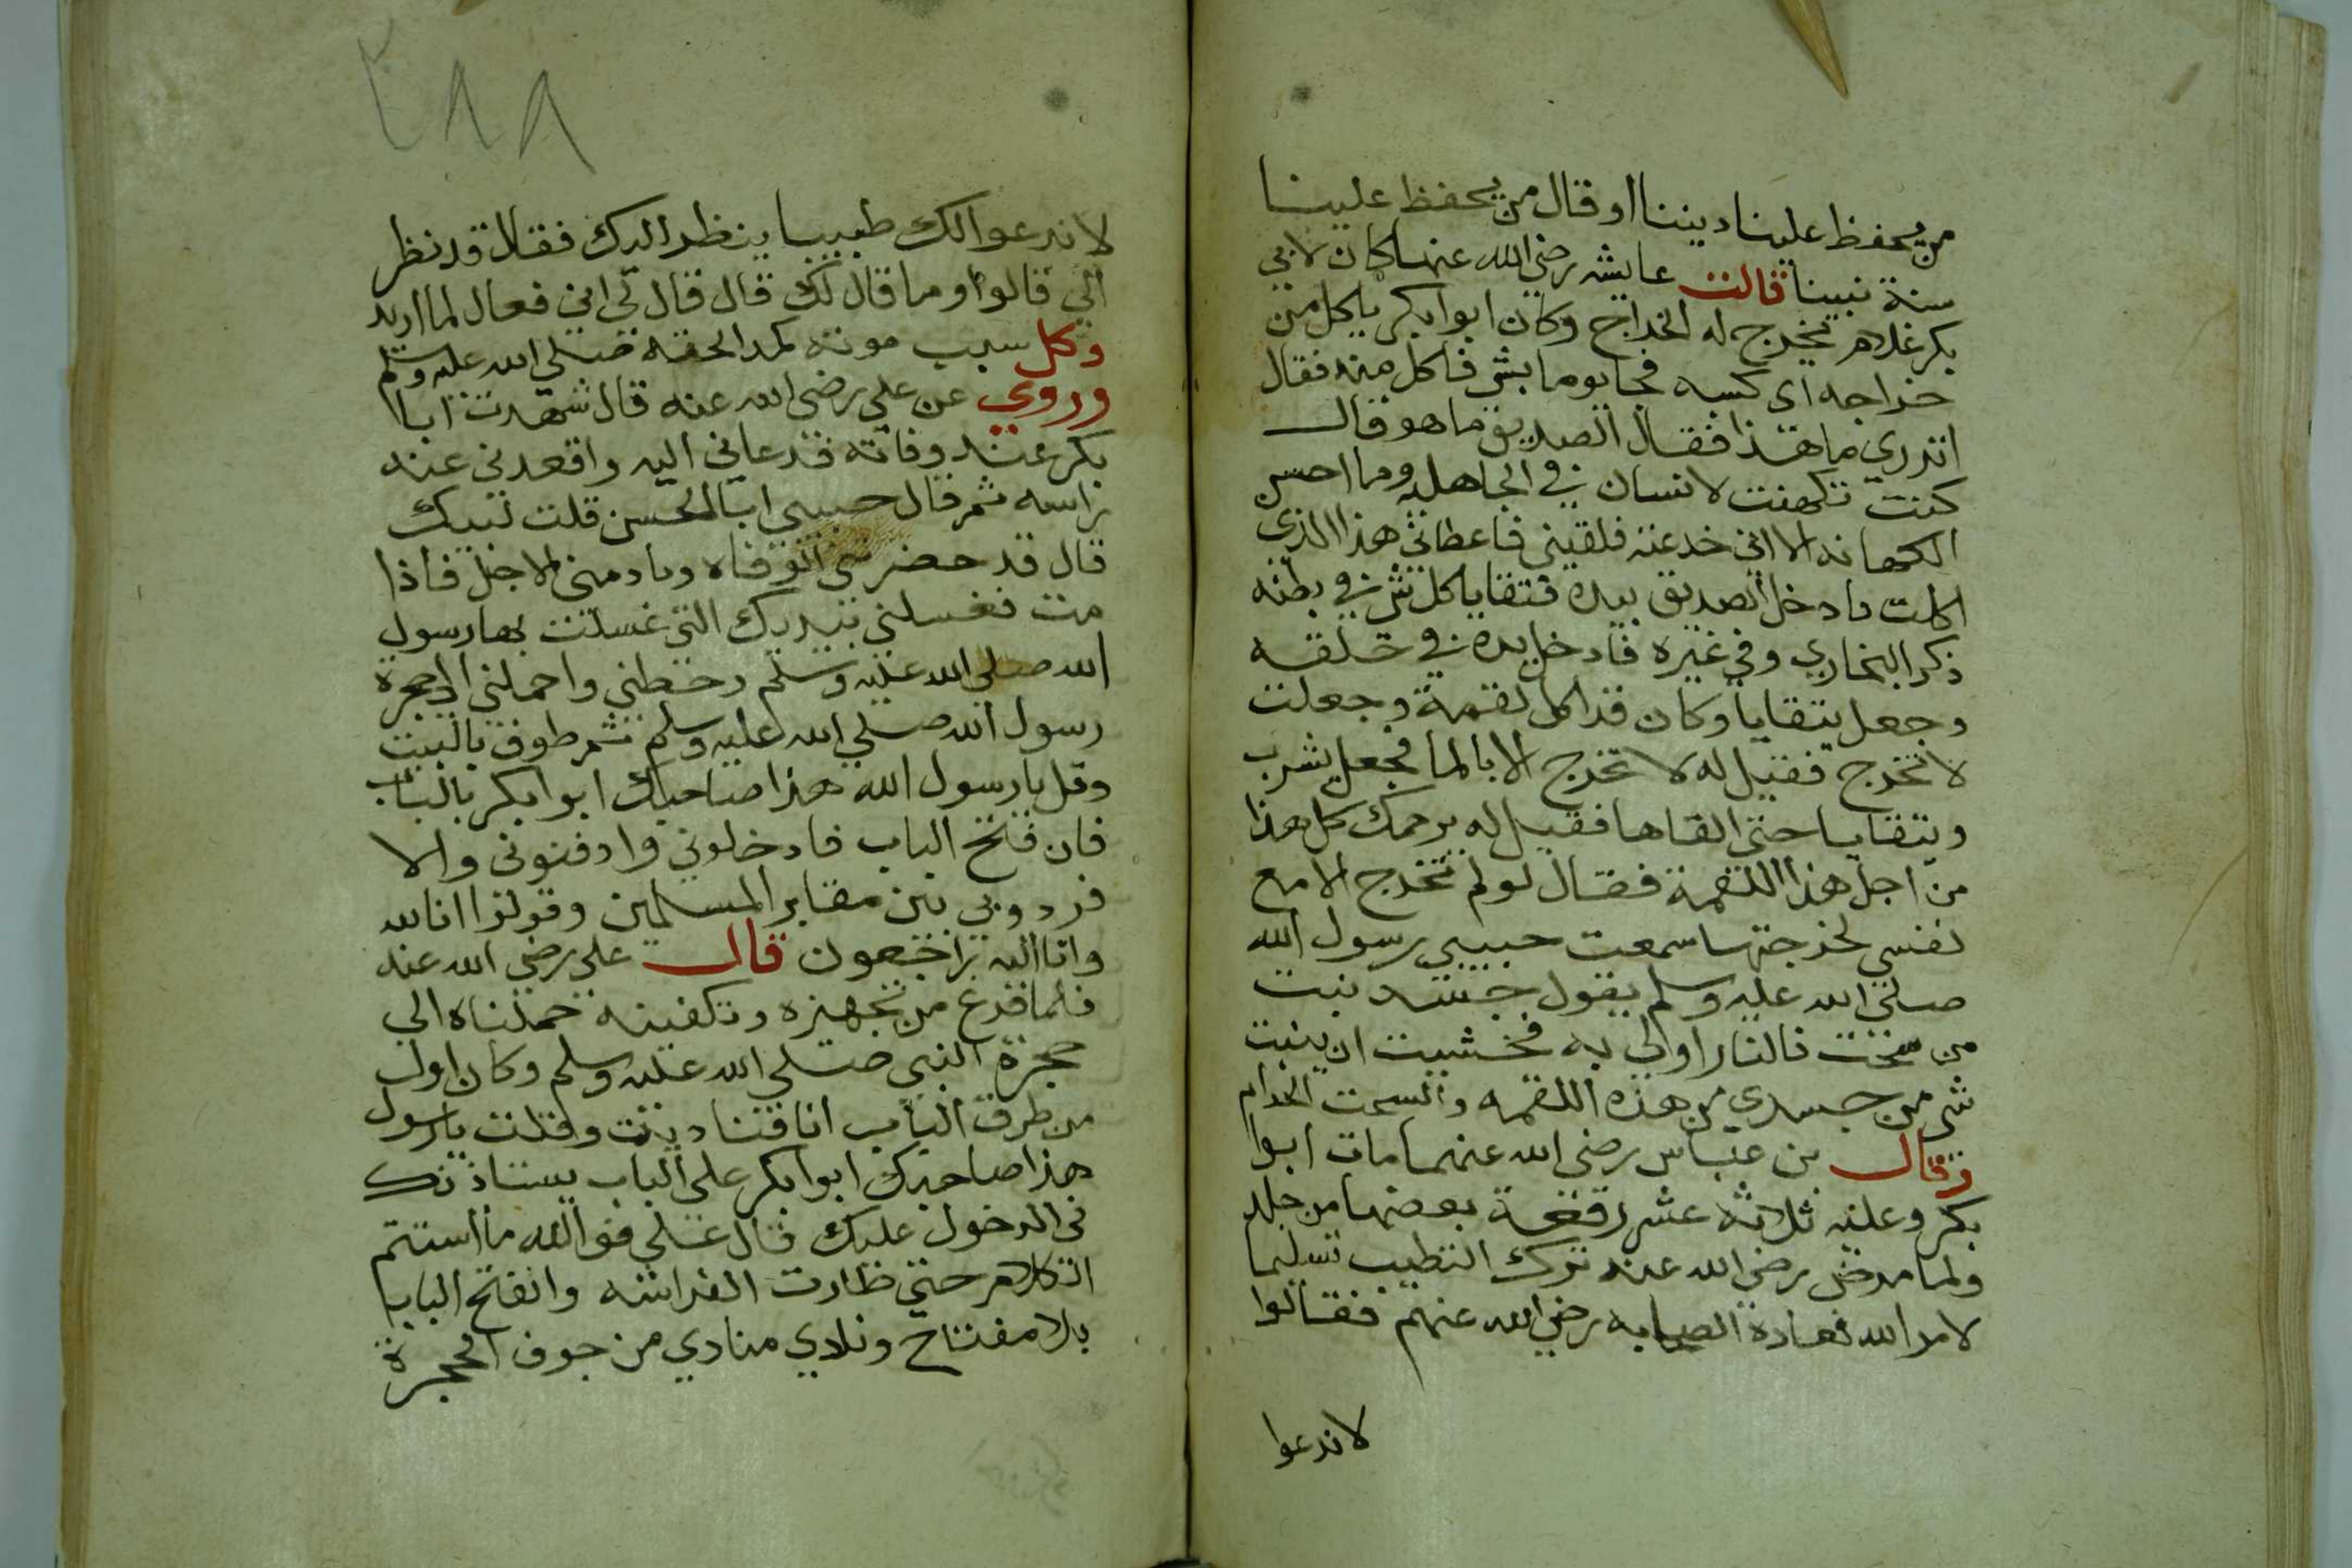 من يحفظ علينا ديننا او قال من يحفظ علينا
سنة نبينا قالت عايشه رضي الله عنها كان لابي
بكر غلام يخرج له الخراج وكان ابوا بكر ياكل من
خراجه اي كسبه فجا يوما بشي فاكل منه فقال
اتدري ما هذا فقال الصديق ما هو قال
كنت تكهنت لانسان في الجاهليه وما احسن
الكهانه الا اني خدعته فلقيني فاعطاني هذا الذي
اكلت فادخل الصديق بيده فتقايا كل شي في بطنه
ذكر البخاري وفي غيره فادخل يده في حلقه
وجعل يتقايا وكان قد اكل لقمة وجعلت
لا تخرج فقيل له لا تخرج الا بالما فجعل يشرب
ويتقايا حتى القاها فقيل له يرحمك كل هذا
من اجل هذا اللقمة فقال لو لم تخرج الا مع
نفسي لخرجتها سمعت حبيبي رسول الله
صلى الله عليه وسلم يقول نبت
من سحت فالنار اولي به فخشيت ان ينبت
شي من جسدي من هذه اللقمه والسحت الحرام
وقال بن عباس رضي الله عنهما مات ابوا
بكر وعليه ثلاثه عشر رقعة بعضها من جلد
ولما مرض رضي الله عنه ترك التطبيب تسليما
لامر الله فعاده الصحابه رضي الله عنهم فقالوا
لا ندعوا
٢٨٨
لا ندعوا لك طبيبا ينظر اليك فقال قد نظر
الي قالوا وما قال لك قال قال لي اني فعال لما اريد
وكل سبب موته كمد الحقه صلي الله عليه وسلم
وروي عن علي رضي الله عنه قال شهدت ابا
بكر عند وفاته فدعاني اليه واقعدني عند
راسه ثم قال حبيبي ابا الحسن قلت لبيك
قال قد حضرتني الوفاه ودنا مني الاجل فاذا
مت فغسلني بيديك التي غسلت بها رسول
الله صلي الله عليه وسلم وحنطني واحملني الي حجرة
رسول الله صلي الله عليه وسلم ثم طوف بالبيت
وقل يا رسول الله هذا صاحبك ابوا بكر بالباب
فان فتح الباب فادخلوني وادفنوني والا
فردوبي بين مقابر المسلمين وقولوا انا لله
وانا اليه راجعون قال علي رضي الله عنه
فلما فرغ من تجهيزه وتكفينه حملناه الي
حجرة النبي صلي الله عليه وسلم وكان اول
من طرق الباب انا فناديت وقلت يا رسول
هذا صاحبك ابوا بكر علي الباب يستاذنك
في الدخول عليك قال علي فوالله ما استتم
الكلام حتي طارت الفراشه وانفتح البابا
بلا مفتاح ونادي منادي من جوف الحجرة